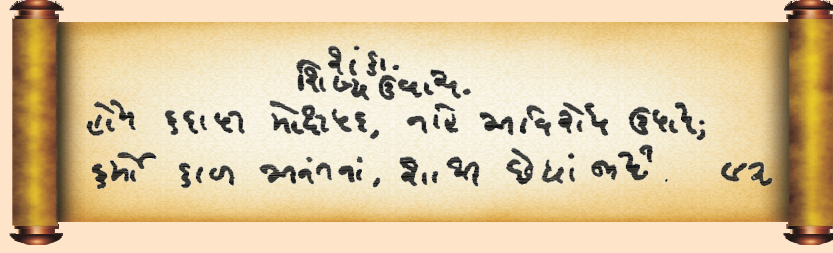 શંકા.
શિષ્ય ઉવાચ.
હોય કદાપી મોક્ષપદ, નહિ અવિરોધ ઉપાય;
કર્મો કાળ અનંતનાં, શાથી છેદ્યાં જાય? ૯૨